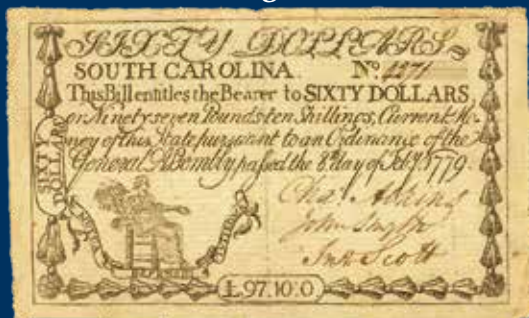 SIXTY DOLLARS
SOUTH CAROLINA. No. 4271
This Bill entitles the Bearer to SIXTY DOLLARS
or Ninety seven Pounds ten Shillings, Current Mo
ney of this State pursuant to an Ordinance of the
General Assembly passed the 8th. day of Feby. 1779.
SIXTY DOLLARS
Chas. Atkins
John Smyth
Jno. Scott
£.97.10:0